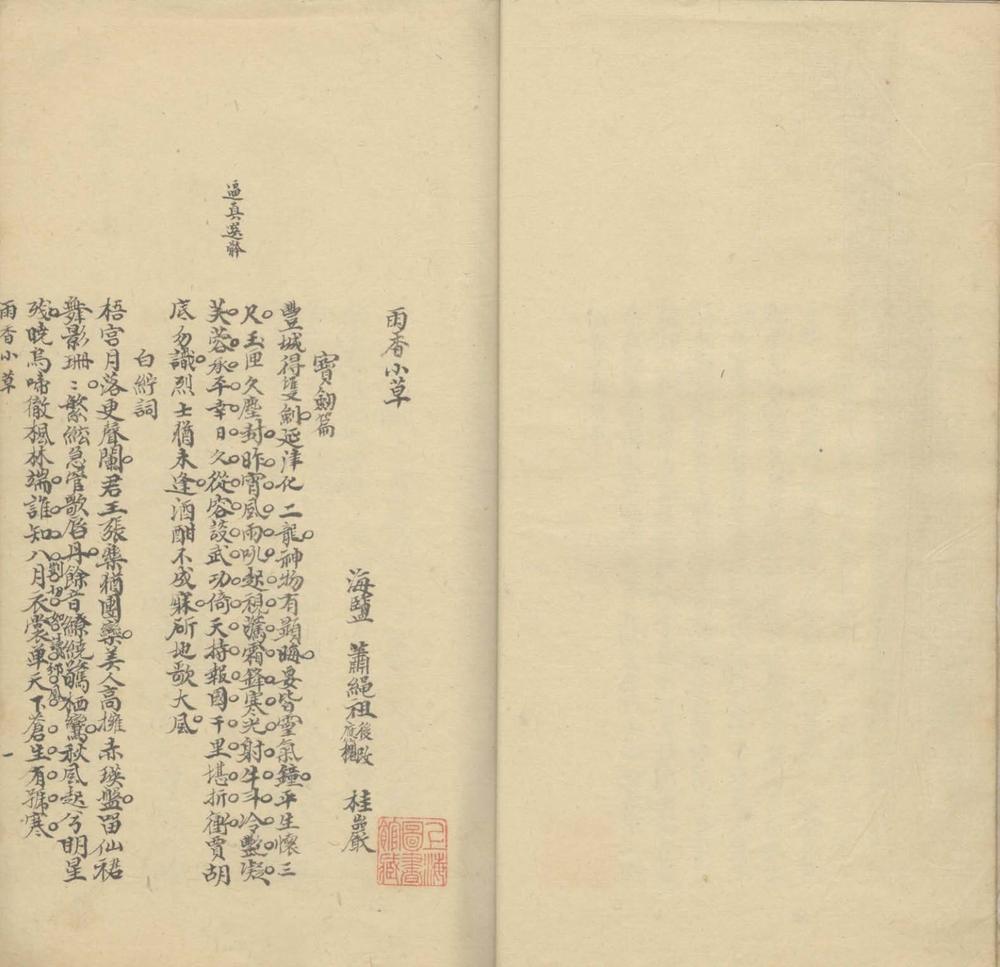 雨香小草
海鹽 蕭繩祖後改應櫆 桂巖
寶劒篇
豐城得雙劍延津化二龍神物有顯晦要皆靈氣鐘平生懷三
尺玉匣久塵封昨宵風雨吼起視濺霜鋒寒光射牛斗冷艷凝
芙蓉承平幸日久從容設武功倚天持報國千里堪折衝賈胡
底勿識烈士猶未逢酒酣不成寐斫地歌大風
逼真選體
白紵詞
梧宮月落更聲闌君王張樂猶團欒美人高擁赤瑛盤留仙裙
舞影珊珊繁絃急管歌唇丹餘音繚繞驚栖鸞秋風起兮明星
殘曉烏啼徹楓林端誰知八月衣裳單天下蒼生有號寒
雨香小草
一
上海圖書館藏